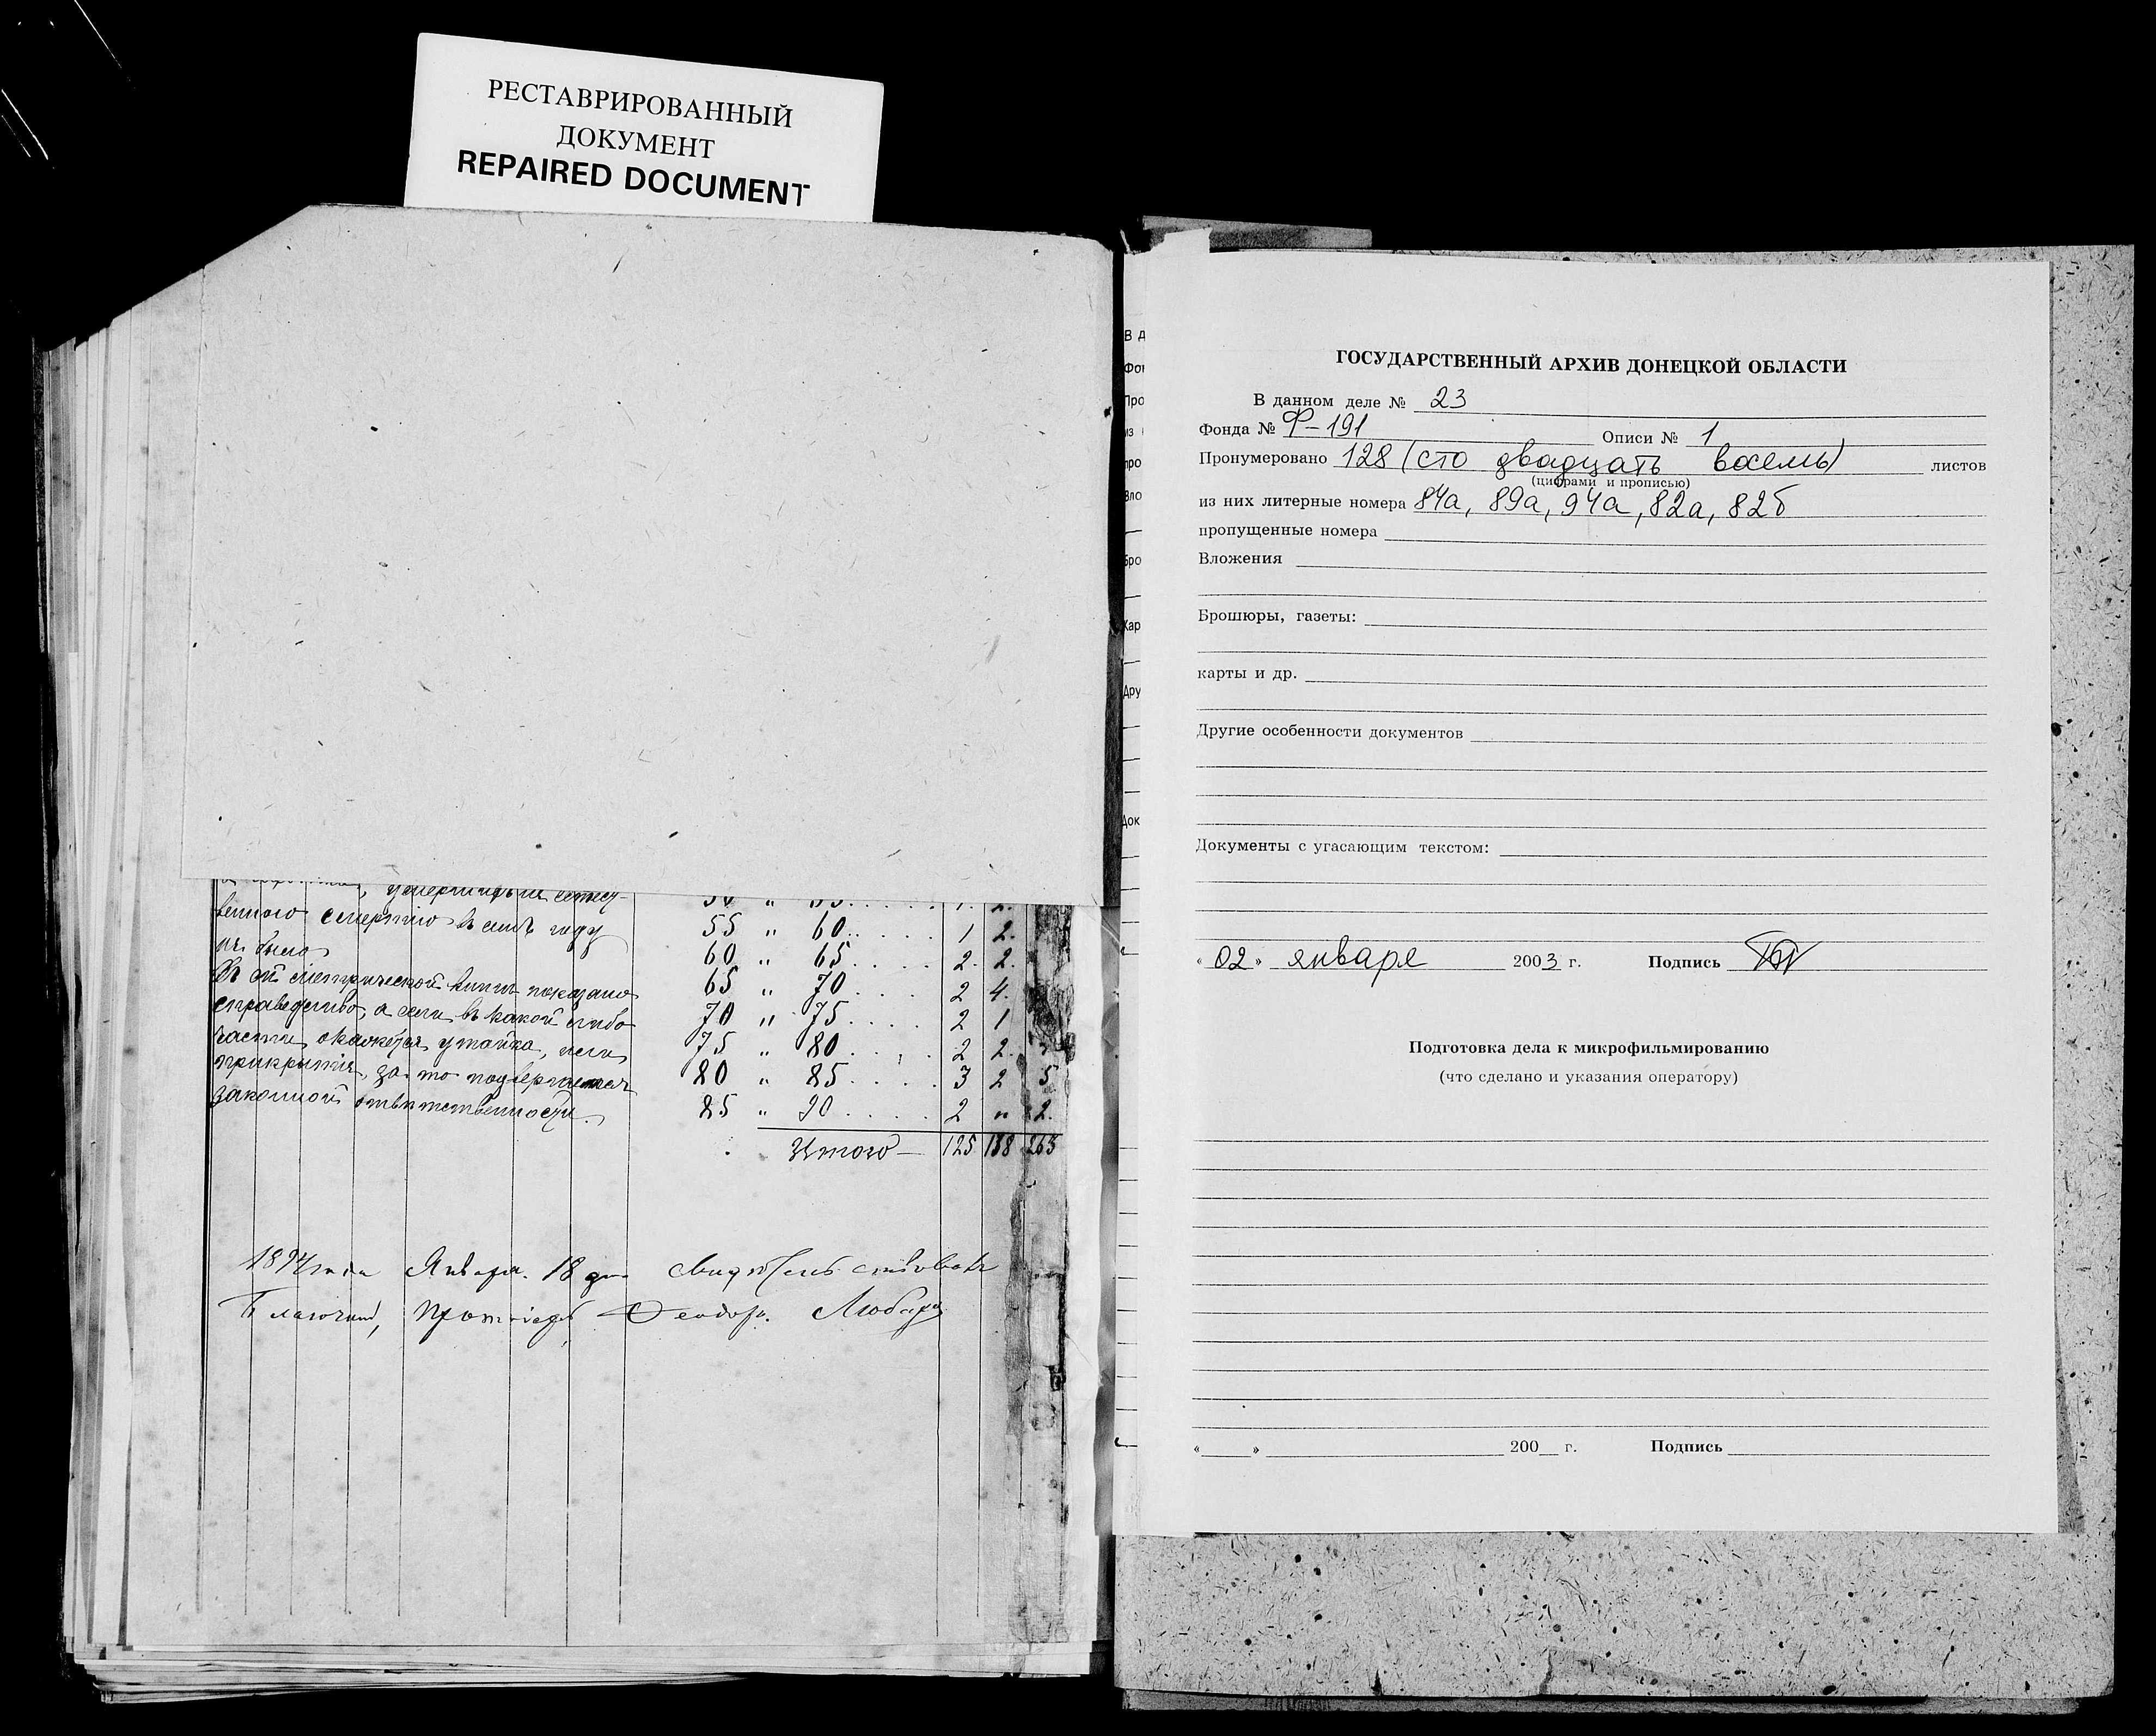 РЕСТАВРИРОВАННЫЙ
ДОКУМЕНТ
REPAIRED DOCUMENT
венною смертію въ семъ году
не было
В сей метрической книгѣ показано
справедливо, а если въ какой либо
части окажется утайка, или
прикрытіе, за то подвергаемся
законной отвѣтственности.
55 " 60 . . . . . 1 2.
60 " 65 . . . . 2. 2.
65 " 70 . . . 2 4.
70 " 75 . . . . 2 1
75 " 80 . . . . 2 2.
80 " 85 . . . . 3 2 5
85 " 90 . . . . . 2 " 2.
Итого — 125 138 263
Января 18 дня свидѣтельствовалъ
Благочинный, Протоіерей Ѳеодоръ
ГОСУДАРСТВЕННЫЙ АРХИВ ДОНЕЦКОЙ ОБЛАСТИ
В данном деле № 23
Фонда № Ф-191 Описи № 1
Пронумеровано 128 (сто двадцать восемь) листов
(цифрами и прописью)
из них литерные номера 84а, 89а, 94а, 82а, 82б
пропущенные номера
Вложения
Брошюры, газеты:
карты и др.
Другие особенности документов
Документы с угасающим текстом:
« 02 » января 2003 г. Подпись
Подготовка дела к микрофильмированию
(что сделано и указания оператору)
« » 200 г. Подпись